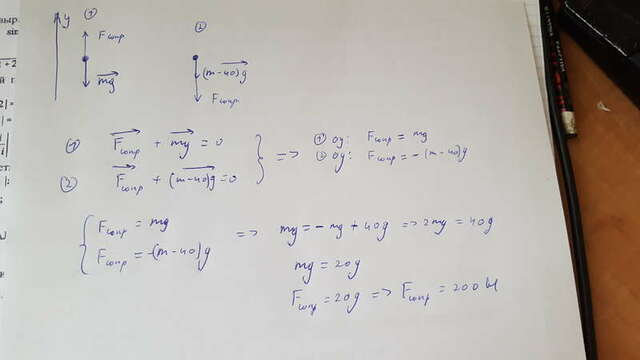 y ① ②
F сопр F сопр
mg (m-40)g
F сопр
① F сопр + mg = 0
② F сопр + (m-40)g = 0
=> ① oy: F сопр = mg
② oy: F сопр = -(m-40)g
F сопр = mg
F сопр = -(m-40)g
=> mg = -mg + 40g => 2mg = 40g
mg = 20g
F сопр = 20g => F сопр = 200 Н